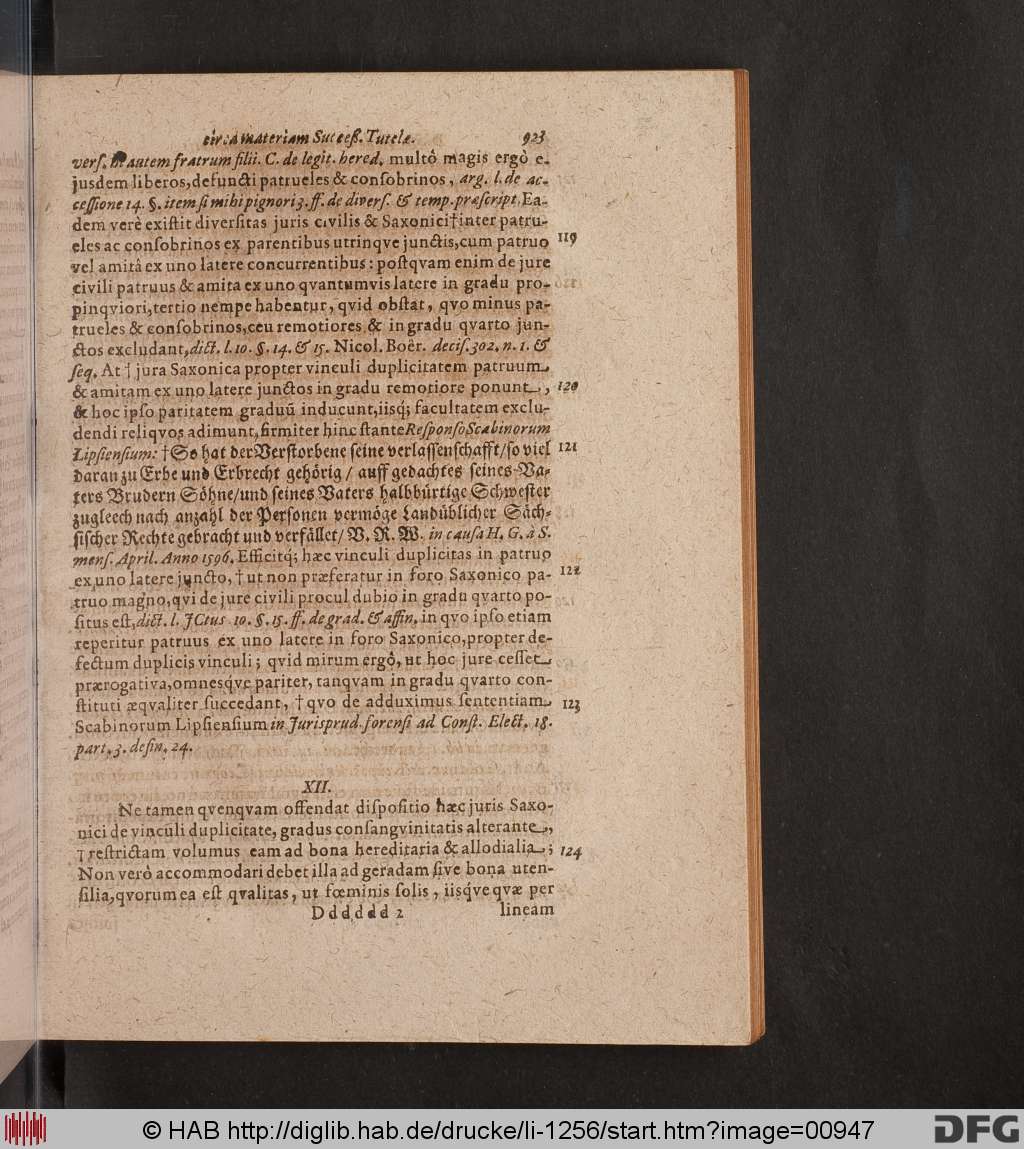 circa materiam Succeß. Tutelæ. 923
vers. autem fratrum filii. C. de legit. hered. multò magis ergò e-
jusdem liberos, defuncti patrueles & consobrinos, arg. l. de ac-
cessione 14. §. item si mihi pignori 3. ff. de divers. & temp. præscript. Ea-
dem verè existit diversitas juris civilis & Saxonici † inter patru-
eles ac consobrinos ex parentibus utrinqve junctis, cum patruo 119
vel amitâ ex uno latere concurrentibus: postqvam enim de jure
civili patruus & amita ex uno qvantumvis latere in gradu pro-
pinqviori, tertio nempe habentur, qvid obstat, qvo minus pa-
trueles & consobrinos, ceu remotiores & in gradu qvarto jun-
ctos excludant, dict. l. 10. §. 14. & 15. Nicol. Boër. decis. 302. n. 1. &
seq. At † jura Saxonica propter vinculi duplicitatem patruum
& amitam ex uno latere junctos in gradu remotiore ponunt, 120
& hoc ipso paritatem graduũ inducunt, iisq́; facultatem exclu-
dendi reliqvos adimunt, firmiter hinc stante Responso Scabinorum
Lipsiensium: † So hat der Verstorbene seine verlassenschafft/ so viel 121
daran zu Erbe und Erbrecht gehörig/ auff gedachtes seines Va-
ters Brudern Söhne/ und seines Vaters halbbürtige Schwester
zugleech nach anzahl der Personen vermöge Landüblicher Säch-
sischer Rechte gebracht und verfället/ V. R. W. in causa H. G. à S.
mens. April. Anno 1596. Efficitq́; hæc vinculi duplicitas in patruo
ex uno latere juncto, † ut non præferatur in foro Saxonico pa- 122
truo magno, qvi de jure civili procul dubio in gradu qvarto po-
situs est, dict. l. JCtus 10. §. 15. ff. de grad. & affin. in qvo ipso etiam
reperitur patruus ex uno latere in foro Saxonico, propter de-
fectum duplicis vinculi; qvid mirum ergò, ut hoc jure cesset
prærogativa, omnesq́ve pariter, tanqvam in gradu qvarto con-
stituti æqvaliter succedant, † qvo de adduximus sententiam 123
Scabinorum Lipsiensium in Jurisprud. forensi ad Const. Elect. 18.
part. 3. defin. 24.
XII.
Ne tamen qvenqvam offendat dispositio hæc juris Saxo-
nici de vinculi duplicitate, gradus consangvinitatis alterante,
† restrictam volumus eam ad bona hereditaria & allodialia; 124
Non verò accommodari debet illa ad geradam sive bona uten-
silia, qvorum ea est qvalitas, ut fœminis solis, iisq́ve qvæ per
D d d d d d 2 lineam
© HAB http://diglib.hab.de/drucke/li-1256/start.htm?image=00947
DFG